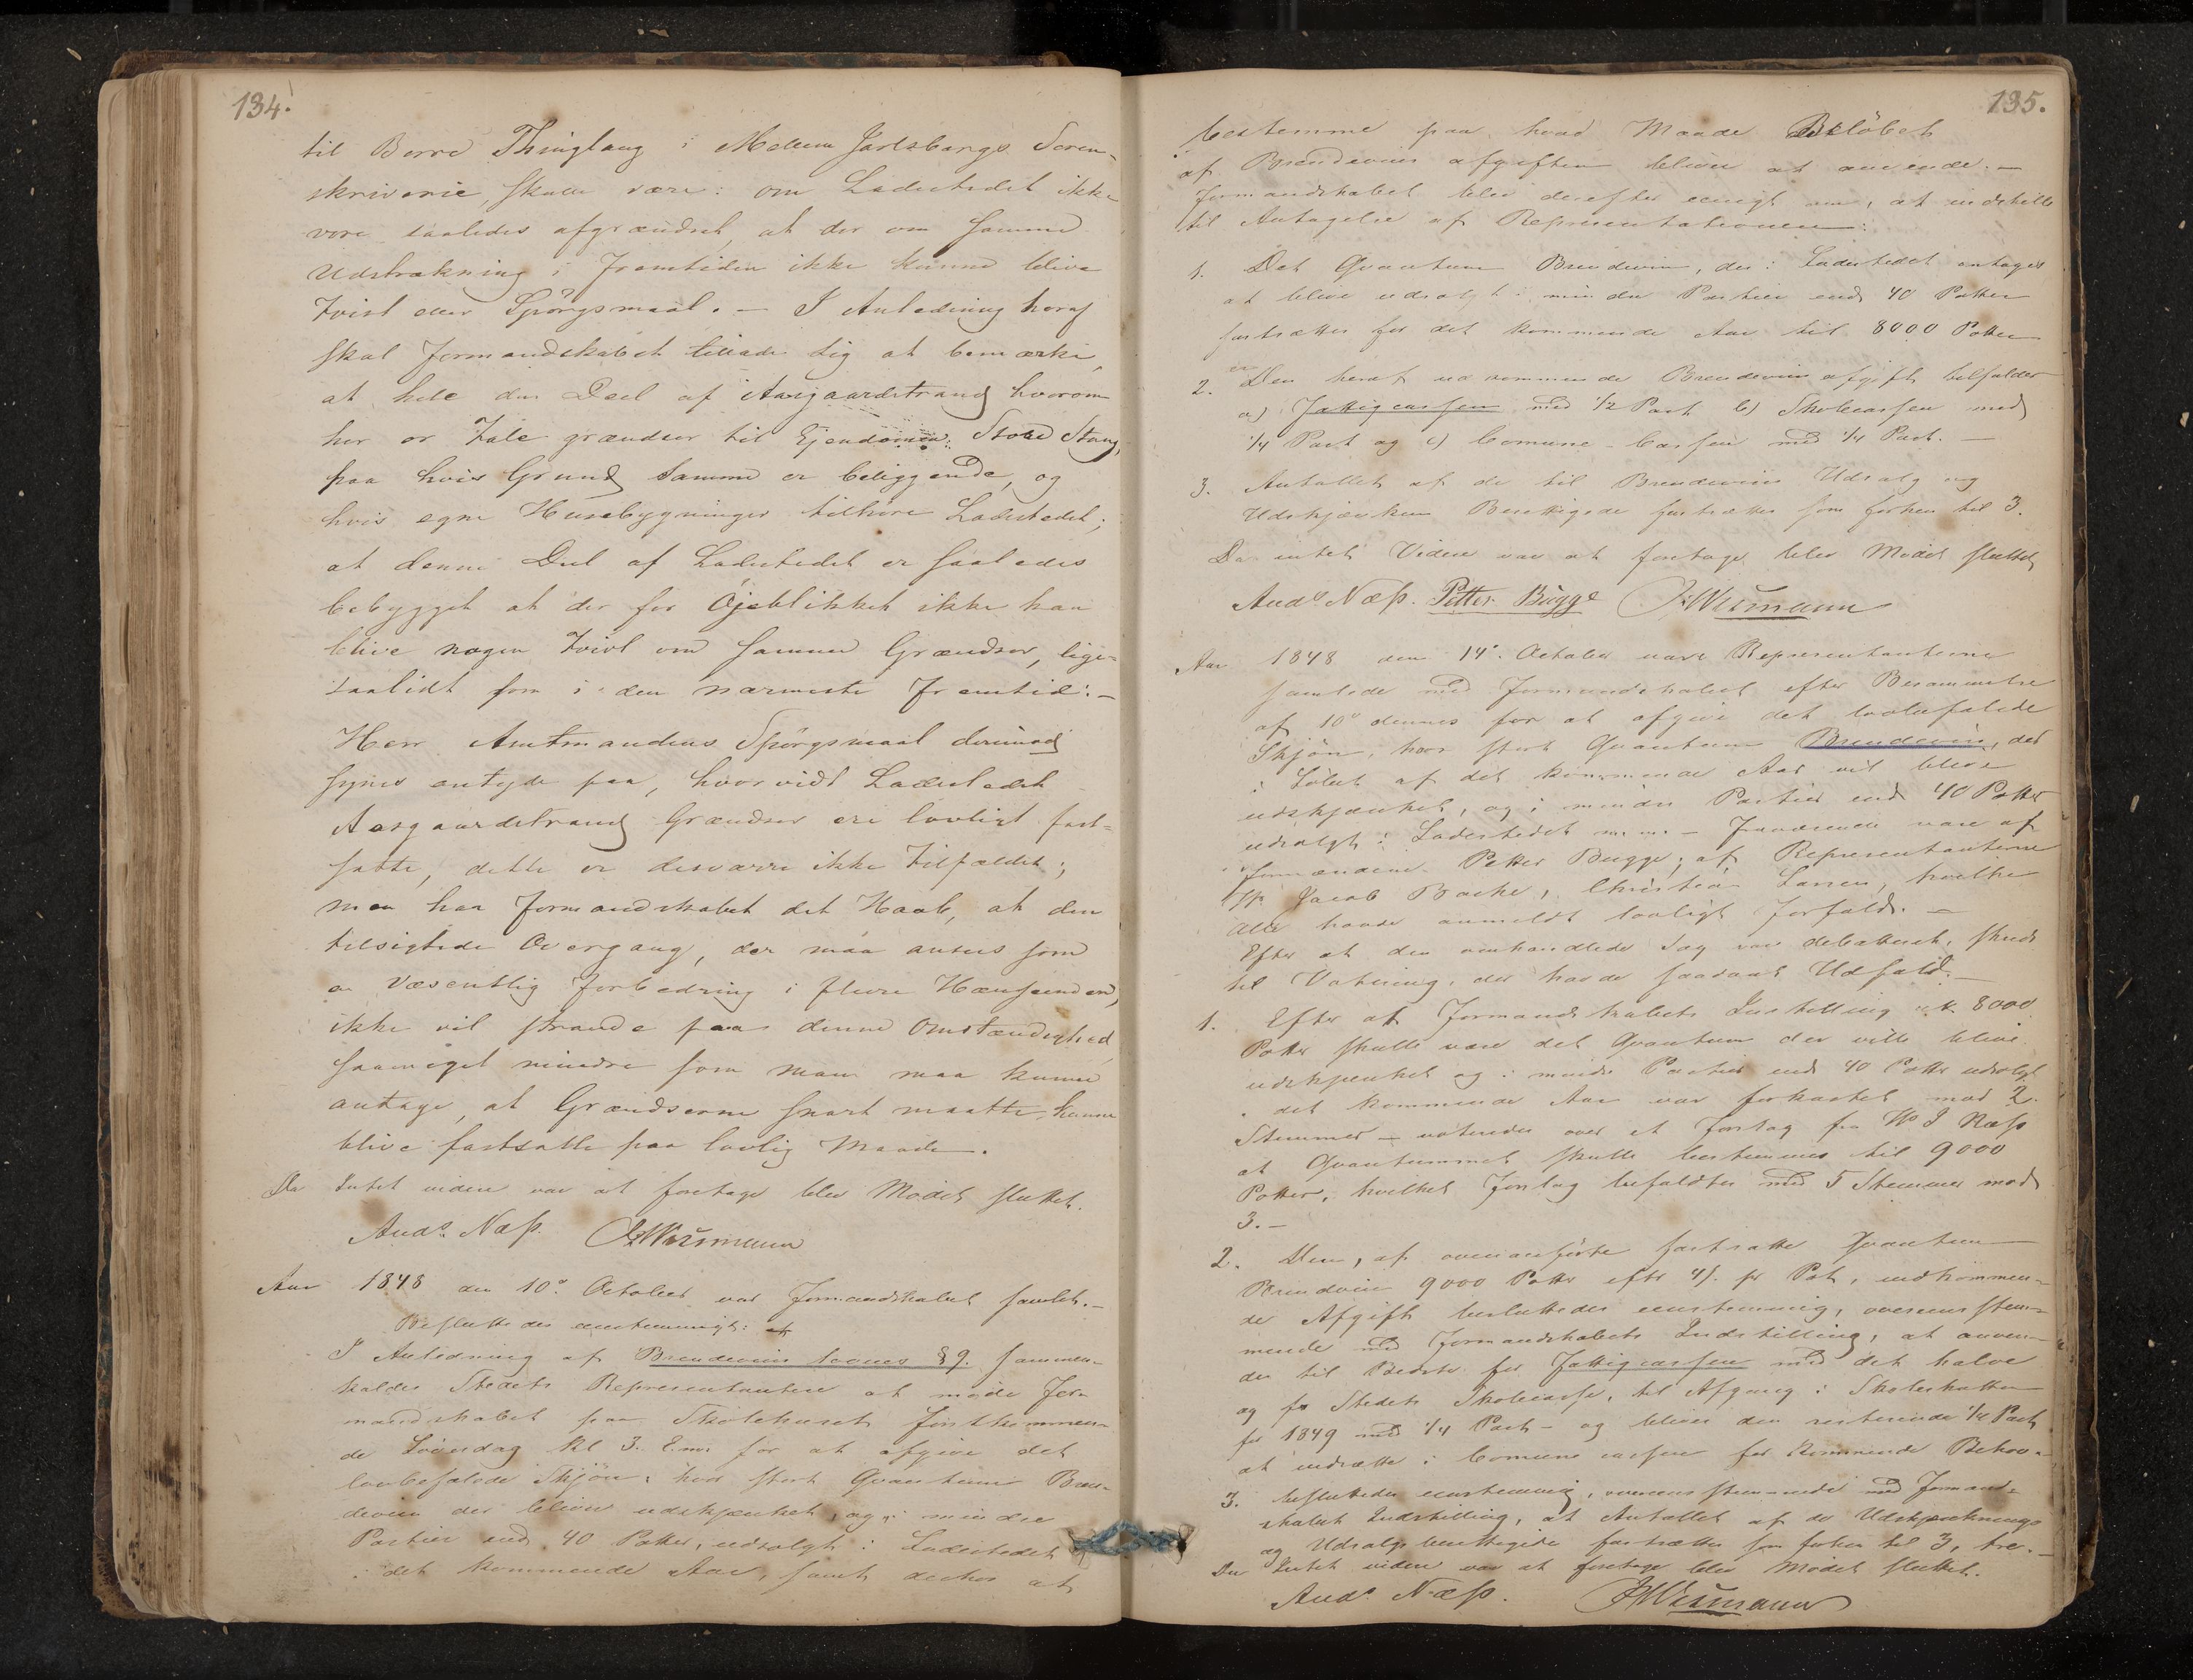 134.
til Borre Thinglaug i Mellem Jarlsbergs Soren-
skriverie, skulle være: om Ladestedet ikke
vare saaledes afgrændset, at der om samme
Udstrækning i Fremtiden ikke kunne blive
Tvivl eller Spörgsmaal. — I Anledning heraf
skal Formandskabet tillade sig at bemærke,
at hele den Deel af Aasgaardstrand hvorom
her er Tale grændser til Ejendomen Store Stang,
paa hvis Grund samme er beliggende, og
hvis egne Husebygninger tilhöre Ladestedet;
at denne Deel af Ladestedet er saaledes
bebygget at der for Öjeblikket ikke kan
blive nogen Tvivl om samme Grændser, lige-
saalidt som i den nærmeste Fremtid. —
Herr Amtmandens Spörgsmaal derimod
synes antyde paa, hvorvidt Ladestedet
Aasgaardstrand Grændser ere lovligt fast-
satte, dette er desværre ikke Tilfældet;
men har Formandskabet det Haab, at den
tilsigtede Overgang, der maa ansees som
en Væsentlig Forbedring i flere Hænseender,
ikke vil strande paa denne Omstændighed,
saameget mindre som man maa kunne
antage, at Grændserne snart maatte kunne
blive fastsatte paa lovlig Maade.
Da Intet videre var at foretage blev Mödet sluttet.
Ands Næss. Wiismann
Aar 1848 den 10de October var Formandskabet samlet. —
Besluttedes eenstemmigt: at
I Anledning af Brendeviins lovens § 9. sammen-
kaldes Stedets Representantere at möde For-
mandskabet paa Skolehuset förstkommen-
de Löverdag Kl 3. E.m. for at afgive det
lovbefalede Skjön: hvor stort Quantum Bren-
deviin der bliver udskjænket, og i mindre
Partier end 40 Potter, udsolgt i Ladestedet
i det kommende Aar, samt derhos at
135.
bestemme paa hvad Maade Belöbet
af Brendeviins afgiften bliver at anvende. —
Formandskabet blev derefter eenigt om, at indstille
til Antagelse af Representationen:
1. Det Qvantum Brendeviin, der i Ladestedet antages
at blive udsolgt i mindre Partier end 40 Potter
fastsættes for det kommende Aar til 8000 Potter
2. Den heraf udkommende Brendeviinsafgift tilfalder
a) Fattigcassen med 1/2 Part b) Skolecassen med
1/4 Part og c) Comune-Cassen med 1/4 Part. —
3. Antallet af de til Brendeviins Udsalg og
Udskjænken Berettigede fastsættes som forhen til 3.
Da intet Videre var at foretage blev Mödet sluttet
Ands Næss. Petter Bugge Wiismann
Aar 1848 den 14de October vare Representanterne
samlede med Formandskabet efter Berammelse
af 10de dennes for at afgive det lovbefalede
Skjön, hvor stort Quantum Brendeviin, der
i Löbet af det kommende Aar vil blive
udskjænket, og i mindre Partier end 40 Potter
udsolgt i Ladestedet m.m. — Fraværende vare af
Formændene Petter Bugge; af Representanterne
Jacob Backe, Christian Larsen, hvilke
alle havde anmeldt lovligt Forfald. —
Efter at den omhandlede Sag var debatteret, skred
til Votering, der havde saadant Udfald. —
1. Efter at Formandskabets Indstilling at 8000
Potter skulle være det Qvantum der ville blive
udskjænket og i mindre Partier end 40 Potter udsolgt
i det kommende Aar var forkastet mod 2.
Stemmer — voteredes over et Forslag fra Næss
at Qvantummet skulle bestemmes til 9000
Potter, hvilket Forslag bifaldtes med 5 Stemmer mod
3. —
2. Den, af ovenanförte fastsatte Quantum
Brendeviin 9000 Potter efter 4 s. pr Pot, indkommen-
de Afgift besluttedes eenstemmig, overeensstem-
mende med Formandskabets Indstilling, at anven-
des til Bedste for Fattigcassen med det halve
og for Stedets Skolecasse, til Afgang i Skoleskatten
for 1849 med 1/4 Part — og bliver den resterende 1/4 Part
at indsætte i Comune cassen for kommende Behov. —
3. besluttedes eenstemmig, overeensstemmende med Formand-
skabets Indstilling, at Antallet af de Udskjænknings
og Udsalgsberettigede fastsættes som forhen til 3, tre. —
Da Intet videre var at foretage blev Mödet sluttet.
Ands Næss. Wiismann